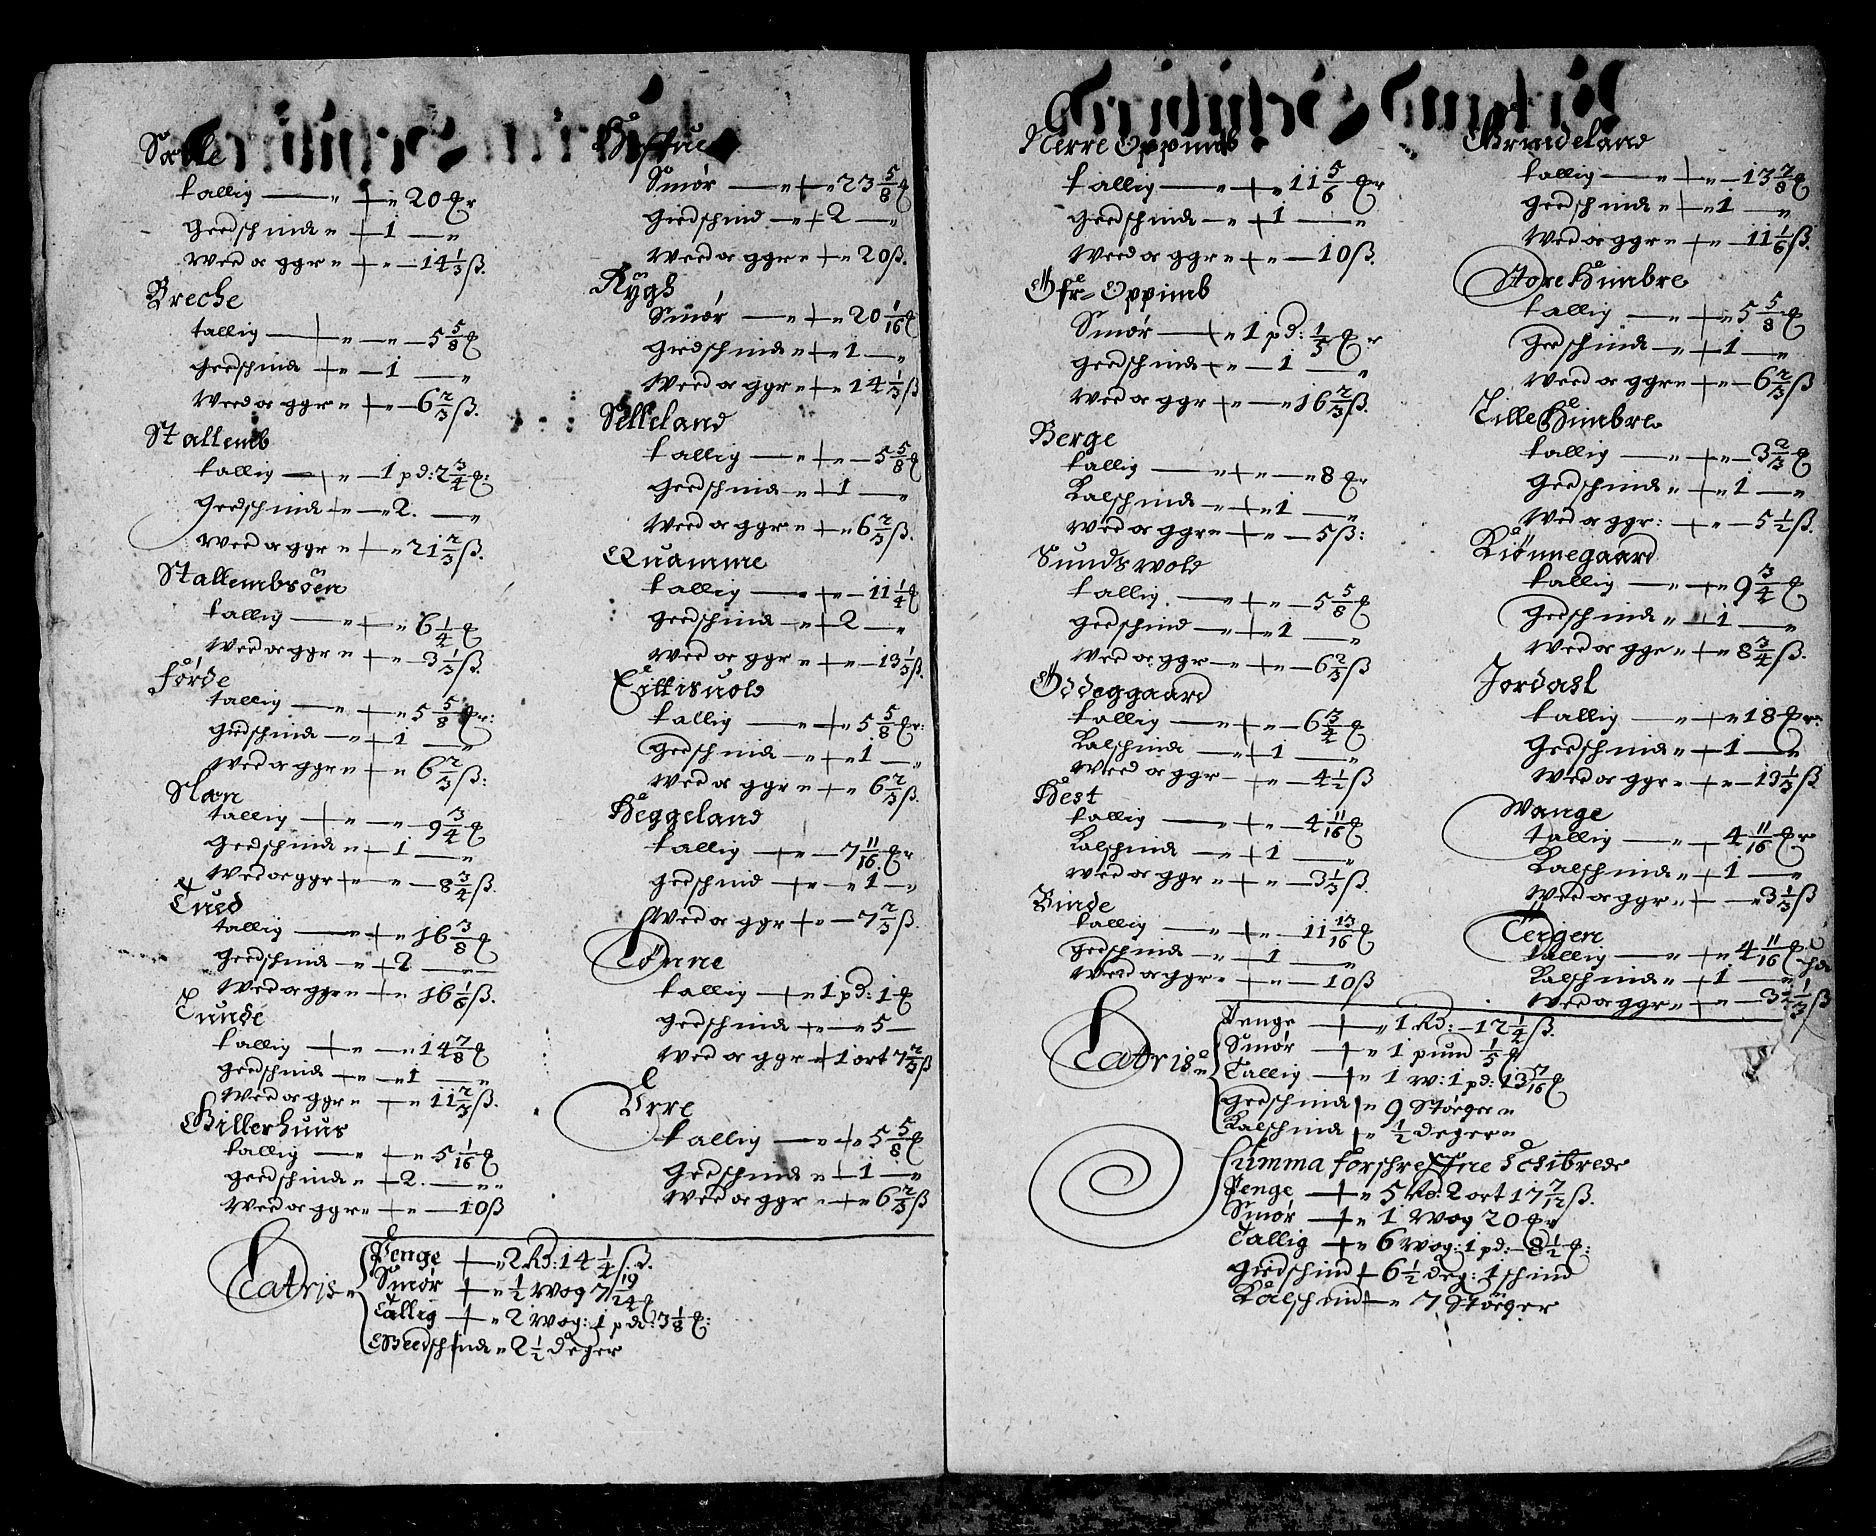 Sælle
tallig — " + " 20 ℔r
Geedschind " + 1 — "
Weed og ggr " + " — 14 1/3 ß.
Breche
tallig — + " — " — 5 5/8 ℔
geedschind + " — 1 — "
Weed og ggr " + " — 6 2/3 ß.
Stallemb
tallig — + " — 1 pd: 2 3/4 ℔:
geedschind + " — " 2. — "
Weed og ggr " + " 21 2/3 ß.
Stallembsöen
tallig — " + " 6 1/4 ℔
Wed og ggr " + " — 3 1/3 ß.
Førde
tallig — " + " 5 5/8 ℔r:
giedschind — " + 1 — "
Wed og ggr " + " 6 2/3 ß:
Slaen
tallig + " — " — 9 3/4 ℔
Geedschind " + — 1 — "
Wed og ggr + " — " — 8 3/4 ß.
Tued
tallig — " + " 16 3/8 ℔
geedschind — " + 2 — "
Wed og ggr " + " 16 1/6 ß.
Tunde
tallig — + " — " 14 7/8 ℔
geedschind — + " — " 1 — "
Wed og ggr " — + " 11 2/3 ß.
Billerhuus
tallig — " + " 5 1/16 ℔
geedschind " + 2. — " "
Wed og ggr " + " — 10 ß
Smør — " + " 23 5/8 ℔
Giedschind — " + 2 — "
Weed og ggr " + " 20 ß.
Rygh
Smør — " + " 20 1/16 ℔
Giedschind " + " 1 — "
Weed og ggr " + " 14 1/3 ß
Selleland
tallig — " + " — 5 5/8 ℔
geedschind " + 1 — "
Weed og ggr " + " 6 2/3 ß.
Quamme
tallig — " + " — 11 1/4 ℔
geedschind — " + 2 — "
Weed og ggr " + " — 13 1/3 ß.
tallig — " + " 5 5/8 ℔r:
Geedschind — " + " 1 — "
Wed og ggr " + " 6 2/3 ß.
Heggeland
tallig — + " — 7 11/16 ℔r
geedschind + " — " 1 — "
Weed og ggr + " — 7 2/3 ß.
Tönne
tallig — + " 1 pd: 1 ℔
geedschind " + " — 5 —
Wed og ggr " + 1 ort 7 2/3 ß
Erre
tallig — " + " 5 5/8 ℔
Geedschind " + 1 — "
Wed og ggr " + " 6 2/3 ß
Latris "
Penge + " 2 Rd: 14 1/4 ß.
Smør + " 1/2 Wog 7 19/24 ℔
Tallig + " 2 Wog: 1 pd: 3 1/8 ℔:
Geedschind " 2 1/2 Deger
Nerre Oppimb
tallig — " + " 11 5/6 ℔r
geedschind — " + 1 — "
Weed og ggr " + " — 10 ß.
Öfre Oppimb
Smør — + " 1 pd: 1/5 ℔r
geedschind + " — 1 — "
Wed og ggr + " — " 16 2/3 ß.
Berge
tallig — " + " — " 8 ℔r
Kalschind — " + " 1 — "
Wed og ggr " + " — 5 ß:
Sundswold
tallig — " + " — 5 5/8 ℔
geedschind — " + " 1 — "
Wed og ggr — " + " — 6 2/3 ß
Ödeggaard
tallig — " + " — 6 3/4 ℔
Kalschind — " + 1 — "
Weed og ggr — " + " — 4 1/2 ß
Hest
tallig — " + " — 4 11/16 ℔
Kalschind — " + 1 — "
Wed og ggr " + " — 3 1/3 ß.
Binde
tallig — " + " — 11 13/16 ℔
geedschind — " + 1 — "
Wed og ggr " + " — 10 ß
Grimdeland
tallig — " + " — 13 7/8 ℔
geedschind " + " 1 — "
Wed og ggr " + " — 11 1/6 ß.
Store Himbre
tallig — " + " 5 5/8 ℔
Geedschind — " + 1 — "
Wed og ggr " + " — 6 2/3 ß
Lille Himbre
tallig — " + " — 3 2/3 ℔
Geedschind " + " 1 — "
Wed og ggr: — + " — 5 1/2 ß.
Kiönnegaard
tallig — " + " 9 3/4 ℔
Geedschind " + 1 — "
Wed og ggr " + " 8 3/4 ß.
Jordasl
tallig — " + " 18 ℔r:
Geedschind " + 1 — "
Wed og ggr " + " — 13 1/3 ß
Wange
tallig — " + 4 11/16 ℔r
Kalschind " + 1 — "
Wed og ggr " + — " 3 1/3 ß
Tergen
tallig — " + " 4 11/16 ℔
Kalschind " + 1 — "
Wed og ggr " + " — 3 1/3 ß
Latris "
Penge + " 1 Rd: — 12 1/4 ß.
Smør + " 1 pund 1/5 ℔
Tallig + " 1 W: 1 pd: 13 7/16 ℔
Geedschind " 9 Støcger "
Kalschind + " 1/2 Deger "
Summa forschrefne Schibrede
Penge + " 5 Rd: 2 ort 17 7/12 ß.
Smør + " 1 Wog 20 ℔r
Tallig + " 6 Wog: 1 pd: — 8 1/2 ℔:
Giedschind + 6 1/2 deg: 1 schind
Kalschind + " 7 Støcger